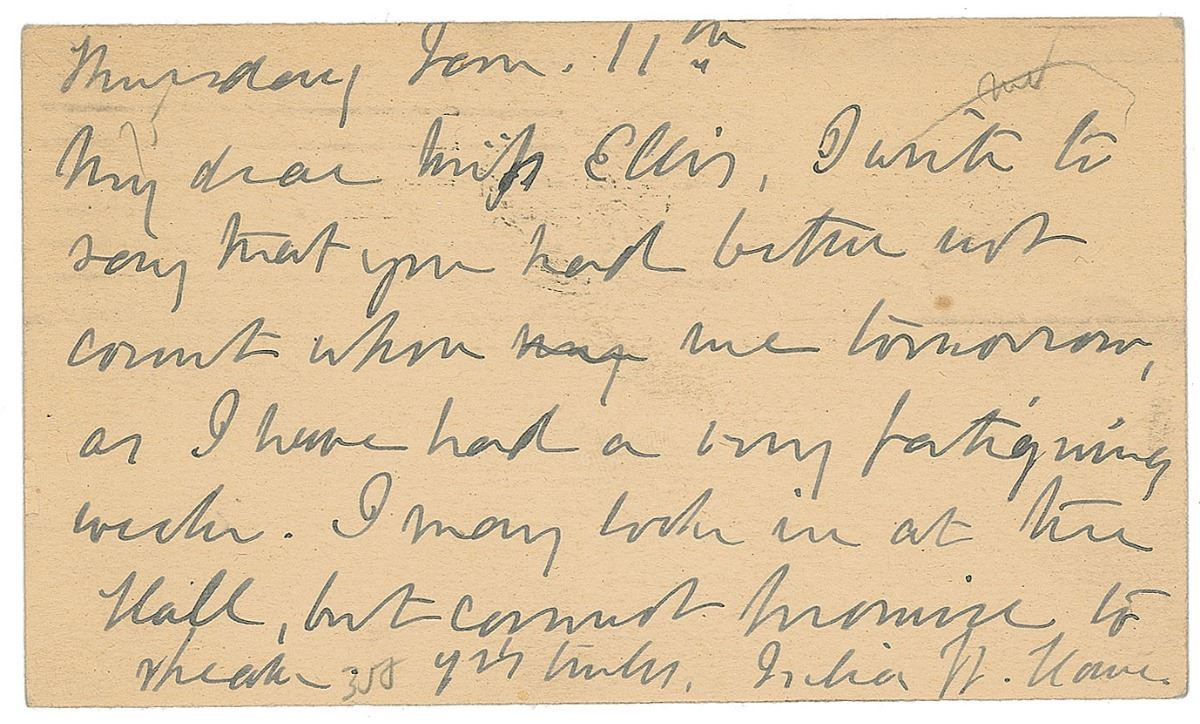 Thursday Jan. 11th
My dear Miss Ellis, I write to
say that you had better not
count upon my me tomorrow,
as I have had a very fatiguing
week. I may look in at the
Hall, but cannot promise to
speak. 358 yrs truly, Julia W. Howe.